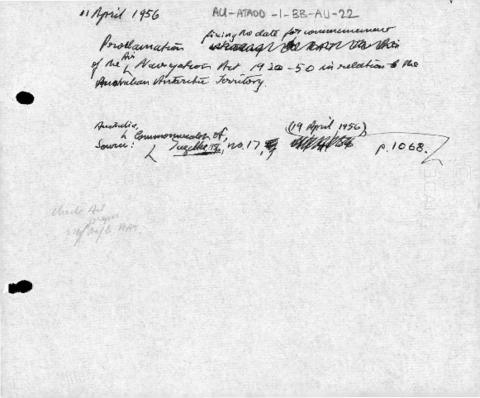 11 April 1956 AU-ATADD-1-BB-AU-22
Proclamation fixing the date for commencement
of the Air Navigation Act 1920-50 in relation to the
Australian Antarctic Territory.
Australia,
Source: Commonwealth of, Gazette, no. 17, (19 April 1956) p. 1068.
Check Act